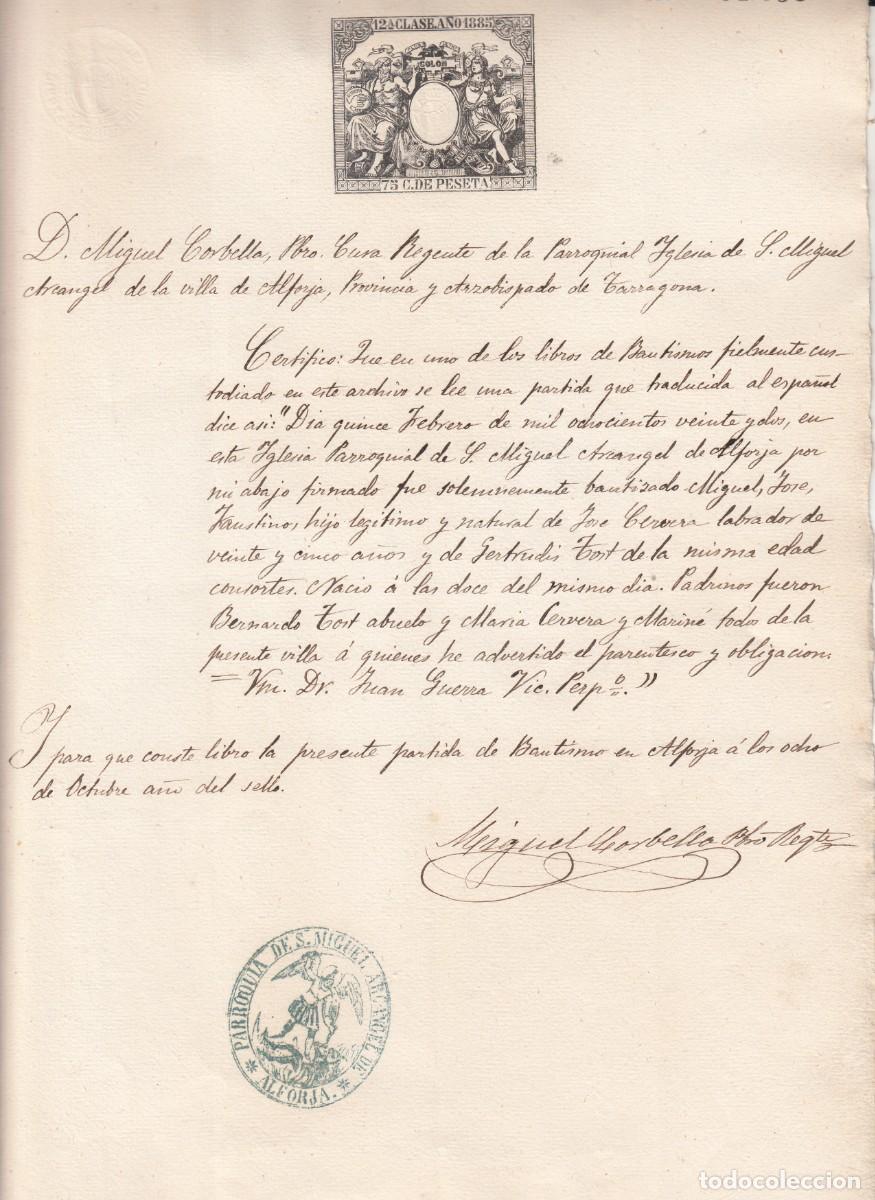 12ª CLASE. AÑO 1885
COLON
75 C. DE PESETA
D. Miguel Corbella, Pbro. Cura Regente de la Parroquial Iglesia de S. Miguel
Arcangel de la villa de Alforja, Provincia y Arzobispado de Tarragona.
Certifico: Que en uno de los libros de Bautismos fielmente cus-
todiado en este archivo se lee una partida que traducida al español
dice asi: "Dia quince Febrero de mil ochocientos veinte y dos, en
esta Iglesia Parroquial de S. Miguel Arcangel de Alforja por
mi abajo firmado fue solemnemente bautizado Miguel, Jose,
Faustino, hijo legitimo y natural de Jose Cervera labrador de
veinte y cinco años y de Gertrudis Tost de la misma edad
consortes. Nacio á las doce del mismo dia. Padrinos fueron
Bernardo Tost abuelo y Maria Cervera y Mariné todos de la
presente villa á quienes he advertido el parentesco y obligacion.
= Dr. Juan Guerra Vic. Perpº."
Y para que conste libro la presente partida de Bautismo en Alforja á los ocho
de Octubre año del sello.
Miguel Corbella Pbro Regte
PARROQUIA DE S. MIGUEL ARCANGEL DE
* ALFORJA. *
todocoleccion